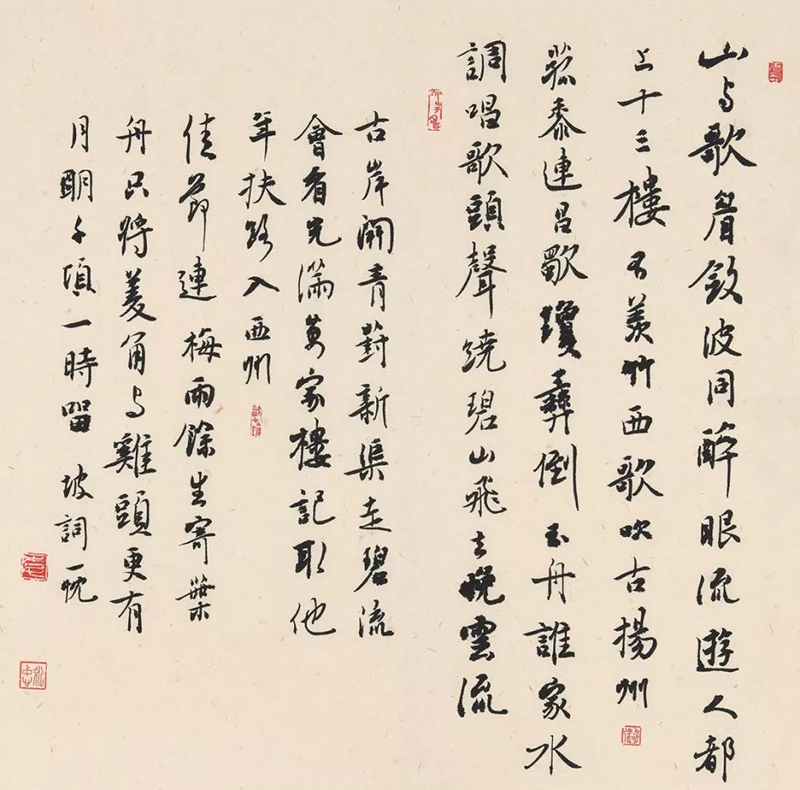 山与歌眉斂波同醉眼流遊人都
上十三樓不羡竹西歌吹古揚州
菰黍連昌歜瓊彝倒玉舟誰家水
調唱歌頭聲繞碧山飛去晚雲流
古岸開青葑新渠走碧流
會看光滿萬家樓記取他
年扶路入西州
佳節連梅雨餘生寄葉
舟只將菱角与雞頭更有
月明千頃一時留 坡詞一